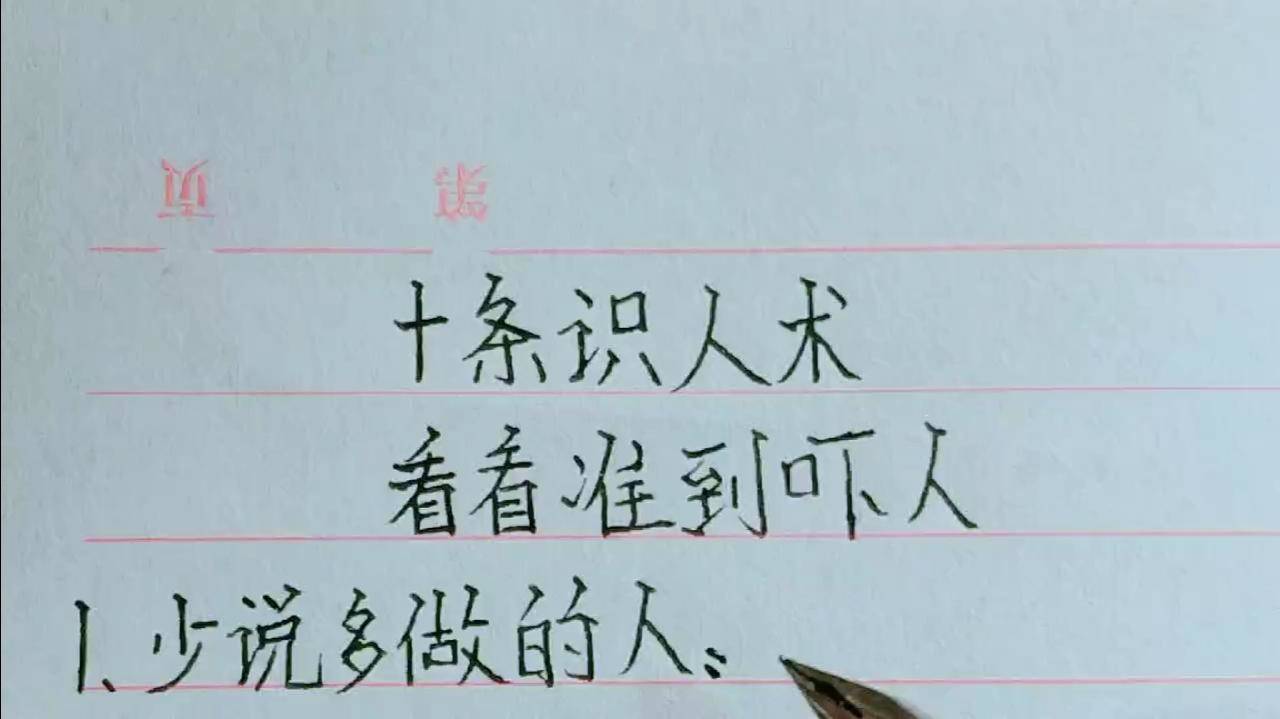 页 第
十条识人术
看看准到吓人
1、少说多做的人：